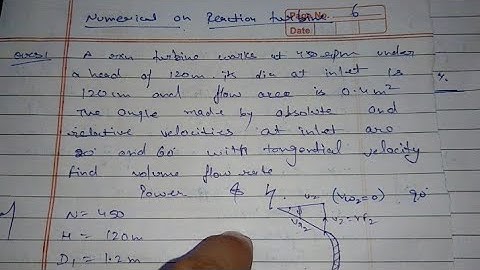 Numerical on Reaction turbine 6
Page No.
Date
Ques 1 A turbine works at 450 rpm under
a head of 120m. its dia at inlet is
120cm and flow area is 0.4m²
The angle made by absolute and
relative velocities at inlet are
20° and 60° with tangential velocity
Find volume flow rate
Power & η. u₂ (Vw₂=0) 90°
N = 450
H = 120m
D₁ = 1.2m
V₂=Vf₂
Vr₂